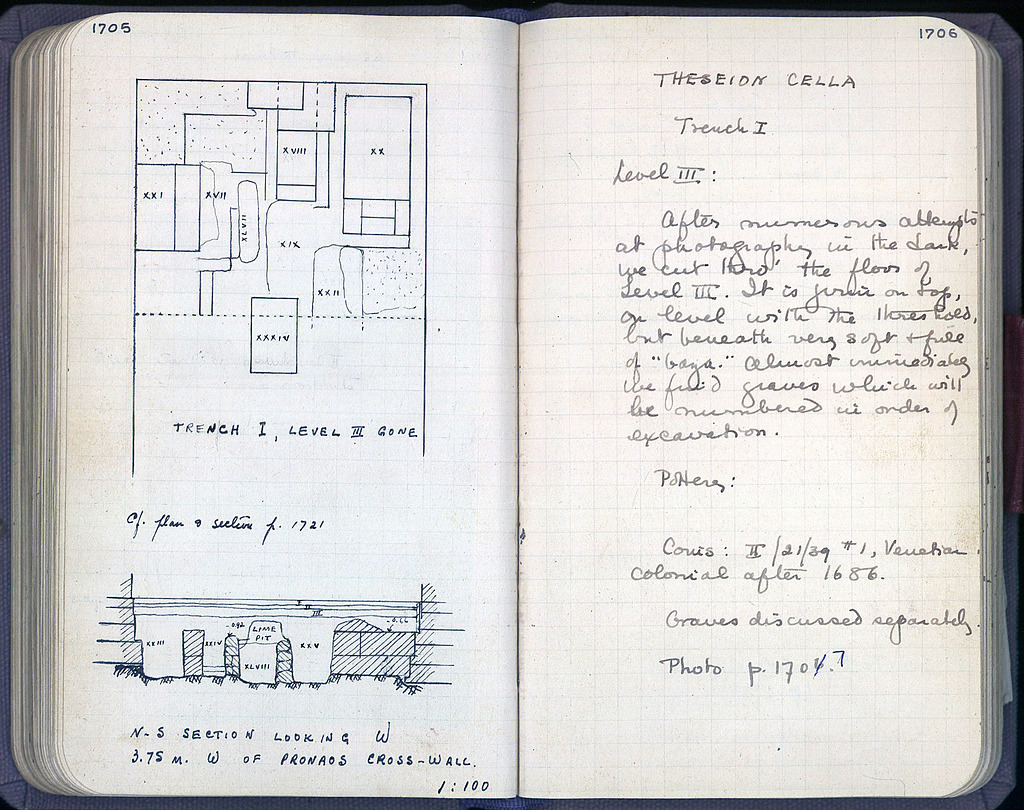 1705
XVIII
XX
XXI
XVII
XLVII
XIX
XXII
XXXIV
TRENCH I, LEVEL III GONE
Cf. plan & section p. 1721
I
II
III
-0.92
LIME
PIT
-0.66
XXIII
XXIV
XLVIII
XXV
N-S SECTION LOOKING W
3.75 M. W OF PRONAOS CROSS-WALL.
1:100
1706
THESEION CELLA
Trench I
Level III:
After numerous attempts
at photography in the dark,
we cut thro' the floor of
Level III. It is firm on top,
on level with the threshold,
but beneath very soft & full
of "baya." Almost immediately
we find graves which will
be numbered in order of
excavation.
Pottery:
Coins: II/21/39 #1, Venetian
colonial after 1686.
Graves discussed separately.
Photo p. 1707